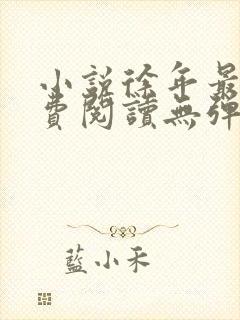 小說徐年最
費閱讀無彈
藍小禾